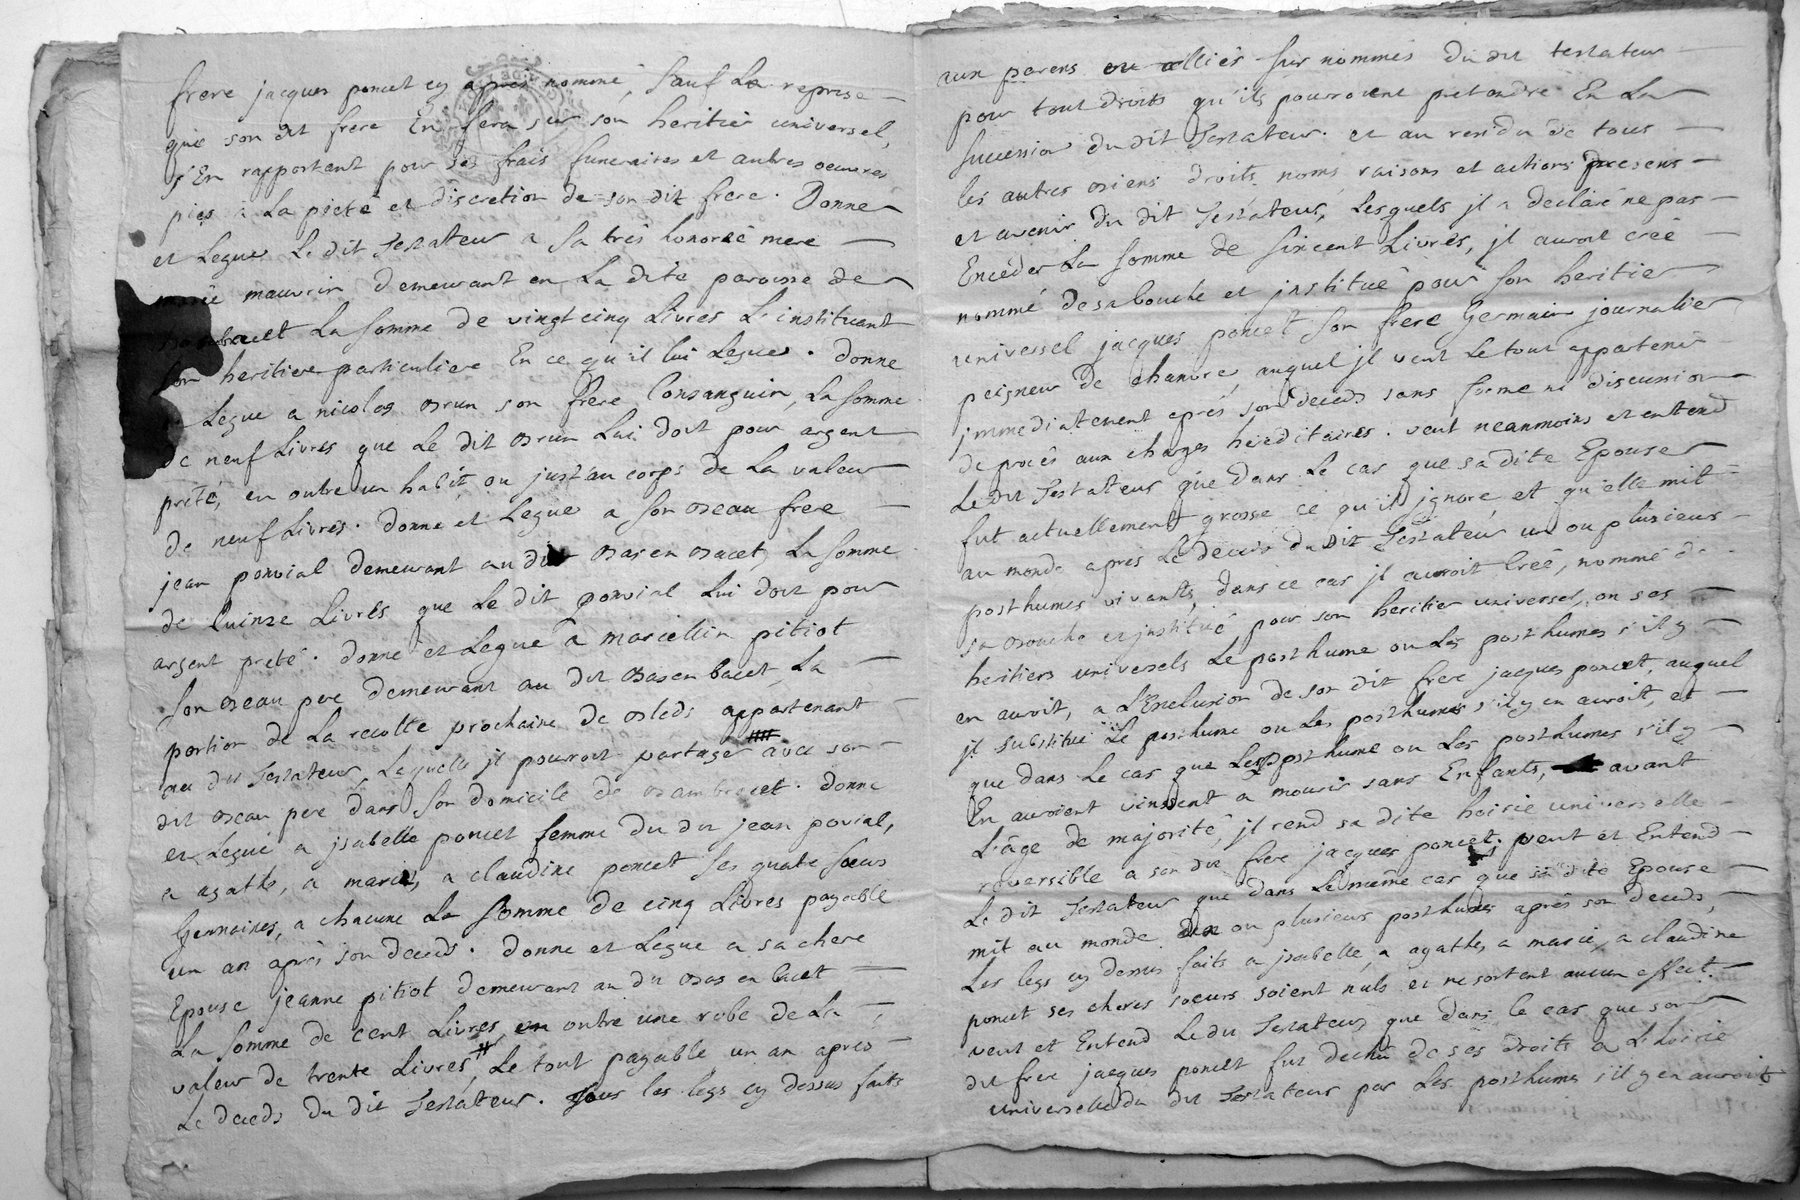 frere jacques poncet cy après nommé, sauf La reprise
que son dit frere En fera sur son heritier universel,
s'En rapportent pour ses frais funeraires et autres oeuvres
pies a La pieté et discretion de son dit frere. Donne
et Legue Le dit Testateur a sa très honorée mere
marie mauvrin demeurant en La dite paroisse de
La somme de vingt cinq Livres L'instituant
son heritiere particuliere En ce qu'il lui Legue. donne
et Legue a nicolas brun son frere Consanguin, La somme
de neuf Livres que Le dit brun Lui doit pour argent
prété, en outre un habit ou just'au corps de La valeur
de neuf Livres. donne et Legue a son beau frere
jean ponvial demeurant au dit bas en bacet, La somme
de quinze Livres que Le dit ponvial Lui doit pour
argent preté. donne et Legue a marcellin pitiot
son beau pere demeurant au dit bas en bacet, La
portion de La recolte prochaine de bleds appartenant
au dit Testateur, Laquelle il pourroit partager avec son
dit beau pere dans son domicile de bambrecet. donne
et Legue a jsabelle poncet femme du dit jean povial,
a agathe, a marie, a claudine poncet ses quatre soeurs
Germaines, a chacune La somme de cinq Livres payable
un an après son deceds. donne et Legue a sa chere
Epouse jeanne pitiot demeurant au dit bas en bacet
La somme de cent Livres, en outre une robe de La
valeur de trente Livres, # Le tout payable un an après
Le deceds du dit Testateur. Tous les legs cy dessus faits
aux parens ou alliés sur nommés du dit testateur
pour tout droits qu'ils pourroient pretendre En La
succession du dit Testateur. et au residu de tous
les autres biens droits noms, raisons et actions presens
et avenir du dit Testateur, Lesquels jl a declaré ne pas
Exceder La somme de sixcent Livres, jl auroit créé
nommé de sa bouche et jnstitué pour son heritier
universel jacques poncet son frere Germain journalier
peigneur de chanvre, auquel jl veut Le tout appartenir
jmmediatement après son deceds sans forme ni discussion
de procès aux charges hereditaires. veut neanmoins et entend
Le dit Testateur que dans Le cas que sa dite Epouse
fut actuellement grosse ce qu'il jgnore, et qu'elle mit
au monde après Le deceds du dit Testateur un ou plusieurs
posthumes vivants, dans ce cas jl auroit Créé, nommé de
sa bouche et jnstitué pour son heritier universel, ou ses
heritiers universels Le posthume ou Les posthumes s'il y
en auroit, a L'Exclusion de son dit frere jacques poncet, auquel
jl substitue Le posthume ou Les posthumes s'il y en auroit, et
que dans Le cas que Les posthume ou Les posthumes s'il y
En auroient vinssent a mourir sans Enfants, avant
L'âge de majorité, jl rend sa dite hoirie universelle
reversible a son dit frere jacques poncet. veut et Entend
Le dit Testateur que dans Le même cas que sa dite Epouse
mit au monde un ou plusieurs posthumes après son deceds,
Les legs cy dessus faits a jsabelle, a agathe, a marie, a claudine
poncet ses cheres soeurs soient nuls et ne sortent aucun effect.
veut et Entend Le dit Testateur que dans le cas que son
dit frere jacques poncet fut dechu de ses droits a L'hoirie
universelle du dit Testateur par Les posthumes s'il y en auroit